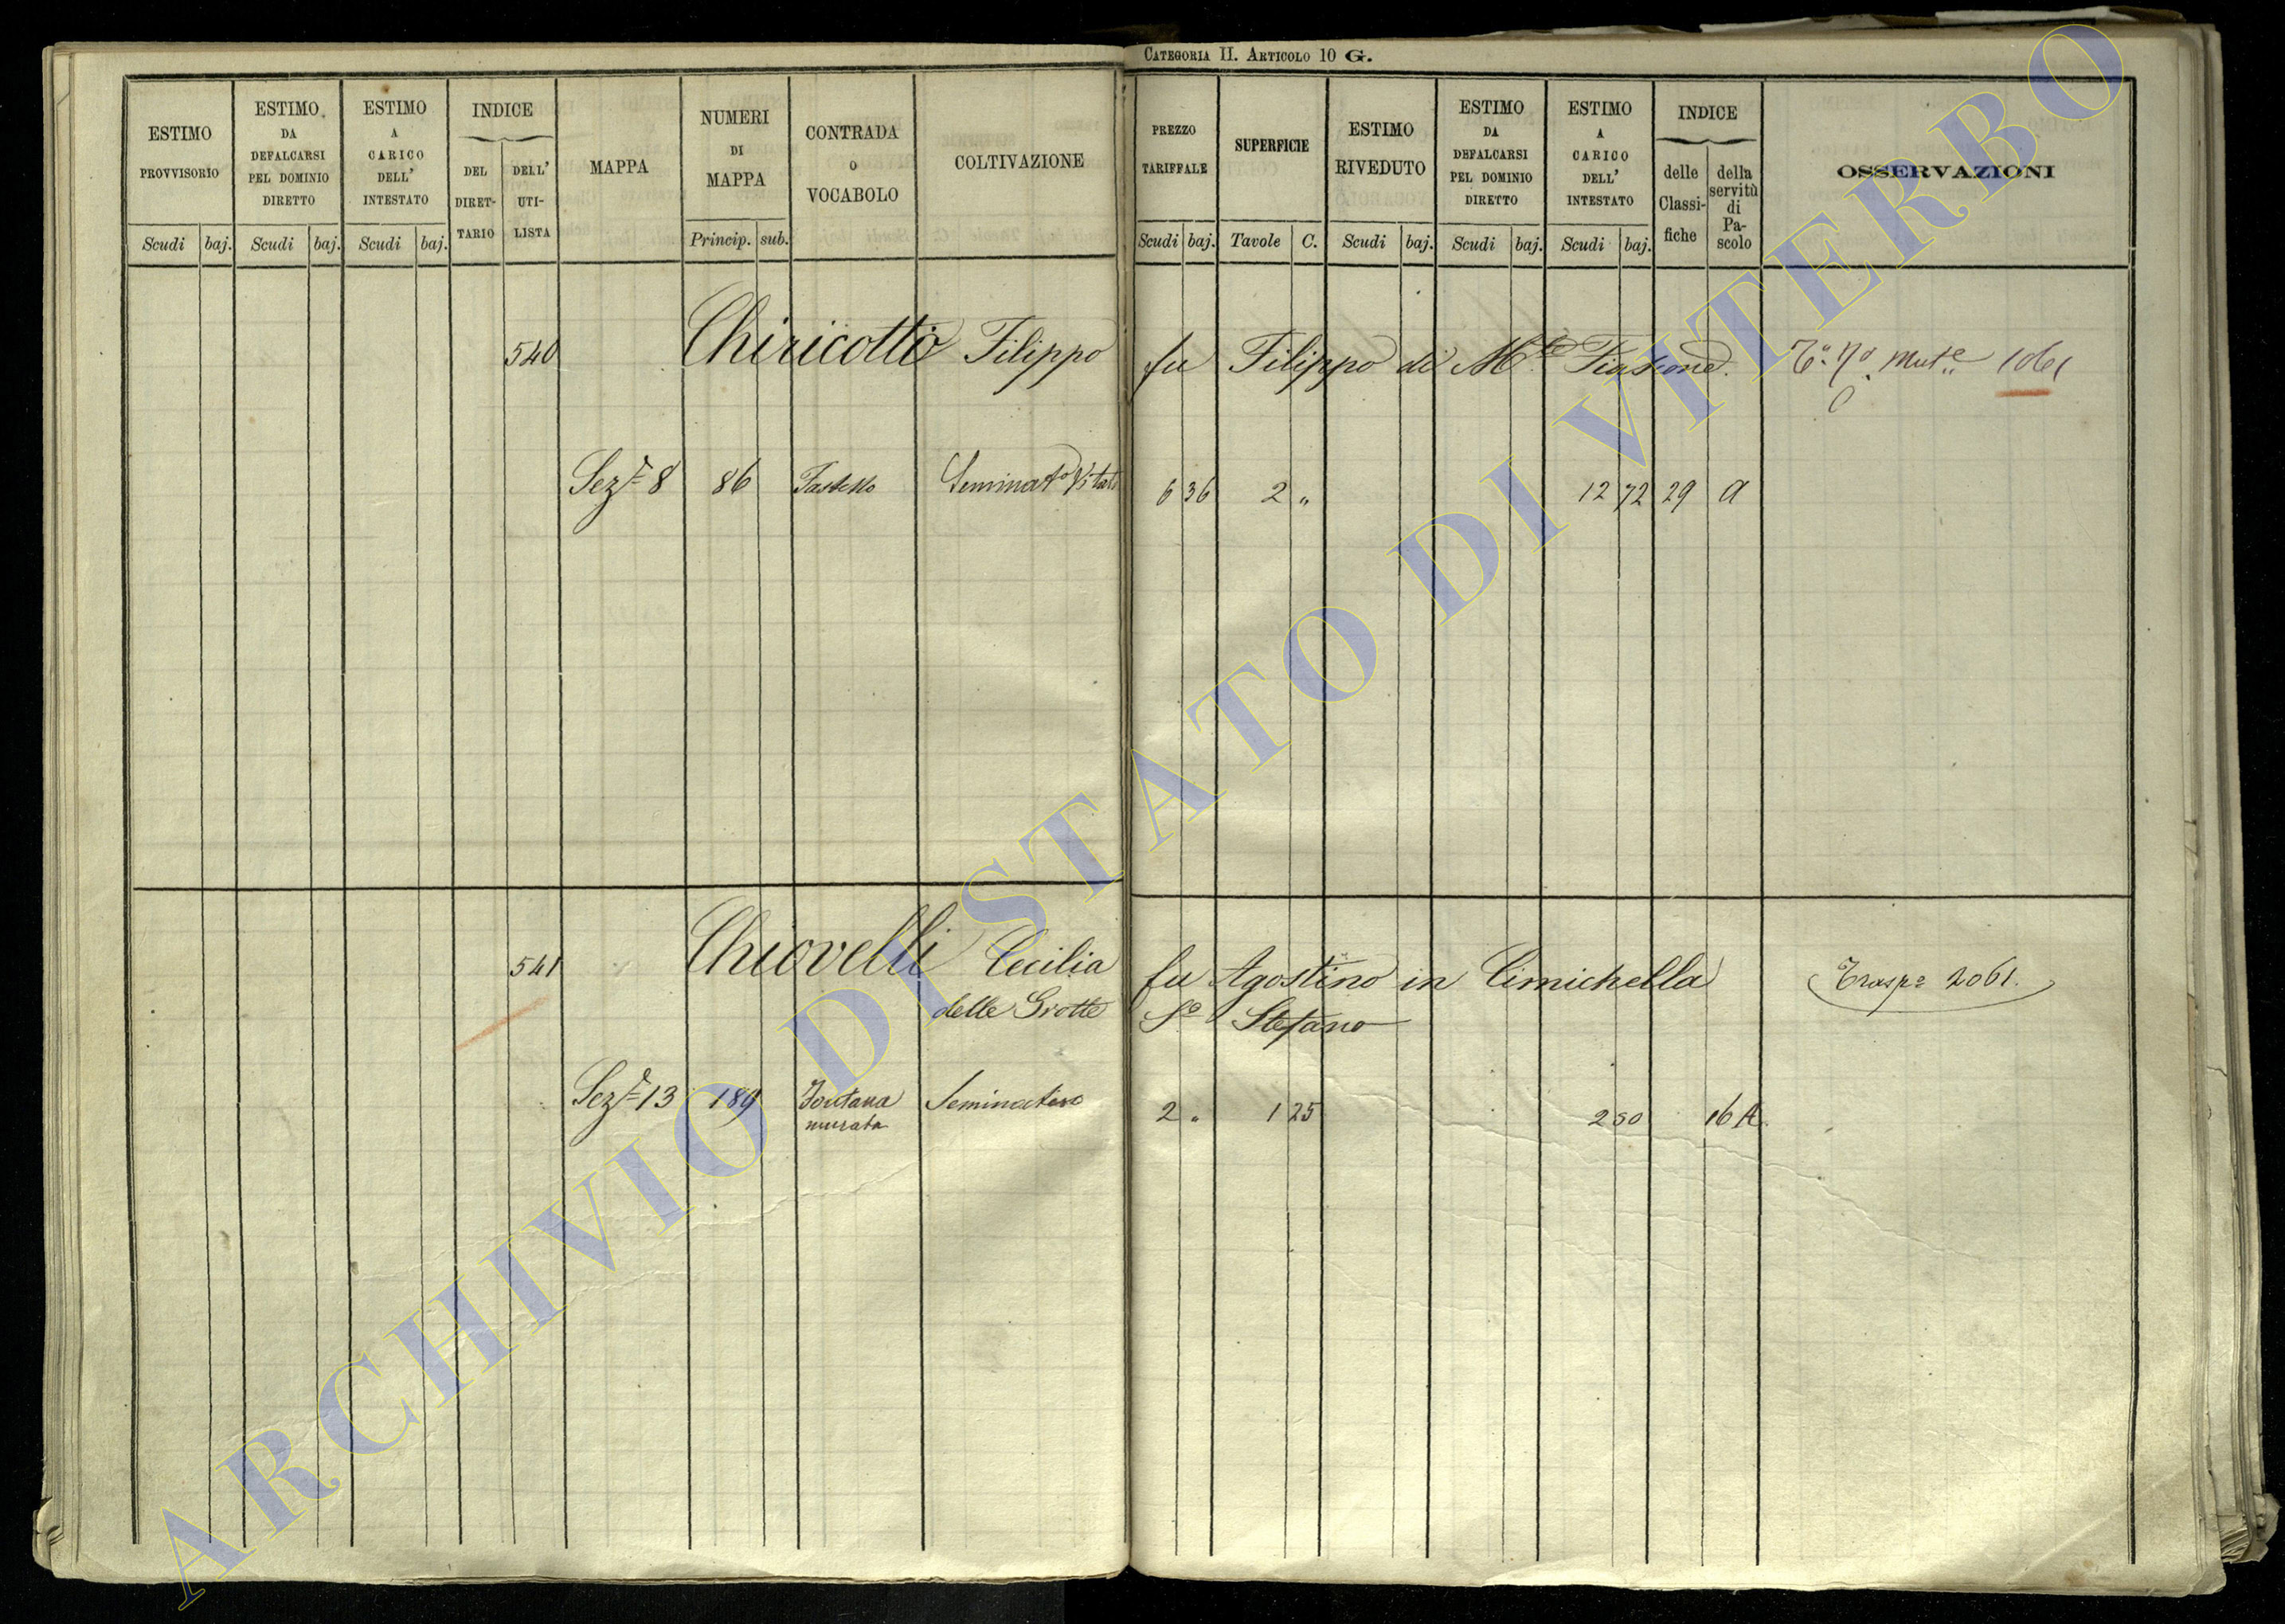 CATEGORIA II. ARTICOLO 10 G.
ESTIMO PROVVISORIO
Scudi baj.
ESTIMO DA DEFALCARSI PEL DOMINIO DIRETTO
Scudi baj.
ESTIMO A CARICO DELL' INTESTATO
Scudi baj.
INDICE
DEL DIRET-
TARIO
DELL' UTI-
LISTA
MAPPA
NUMERI DI MAPPA
Princip. sub.
CONTRADA o VOCABOLO
COLTIVAZIONE
PREZZO TARIFFALE
Scudi baj.
SUPERFICIE
Tavole C.
ESTIMO RIVEDUTO
Scudi baj.
ESTIMO DA DEFALCARSI PEL DOMINIO DIRETTO
Scudi baj.
ESTIMO A CARICO DELL' INTESTATO
Scudi baj.
INDICE
delle Classi-
fiche
della servitù di Pa-
scolo
OSSERVAZIONI
540 Chiricotto Filippo fu Filippo di M.te Fiascone. 1061
Sez.e 8 86 Seminato Vitato 6 36 2 " 12 72 29 a
541 Chiovelli Cecilia fu Agostino in Cimichella Trasp.o 2061.
delle Grotte S.o Stefano
Sez.e 13 189 Fontana Seminativo 2 " 1 25 2 50 16 A.
murata
ARCHIVIO DI STATO DI VITERBO